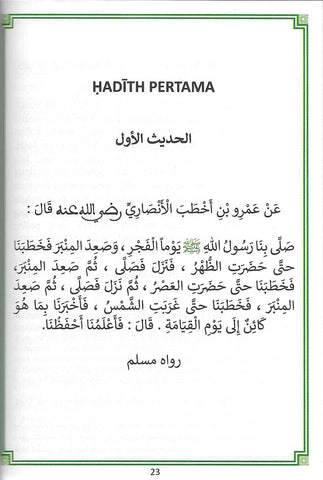 ḤADĪTH PERTAMA
الحديث الأول
عَنْ عَمْرِو بْنِ أَخْطَبَ الْأَنْصَارِيِّ رضي الله عنه قَالَ :
صَلَّى بِنَا رَسُولُ اللهِ ﷺ يَوْماً الْفَجْرِ ، وَصَعِدَ الْمِنْبَرَ فَخَطَبَنَا
حَتَّى حَضَرَتِ الظُّهْرُ ، فَنَزَلَ فَصَلَّى ، ثُمَّ صَعِدَ الْمِنْبَرَ،
فَخَطَبَنَا حَتَّى حَضَرَتِ الْعَصْرُ ، ثُمَّ نَزَلَ فَصَلَّى ، ثُمَّ صَعِدَ
الْمِنْبَرَ ، فَخَطَبَنَا حَتَّى غَرَبَتِ الشَّمْسُ ، فَأَخْبَرَنَا بِمَا هُوَ
كَائِنٌ إِلَى يَوْمِ الْقِيَامَةِ . قَالَ : فَأَعْلَمُنَا أَحْفَظُنَا.
رواه مسلم
23